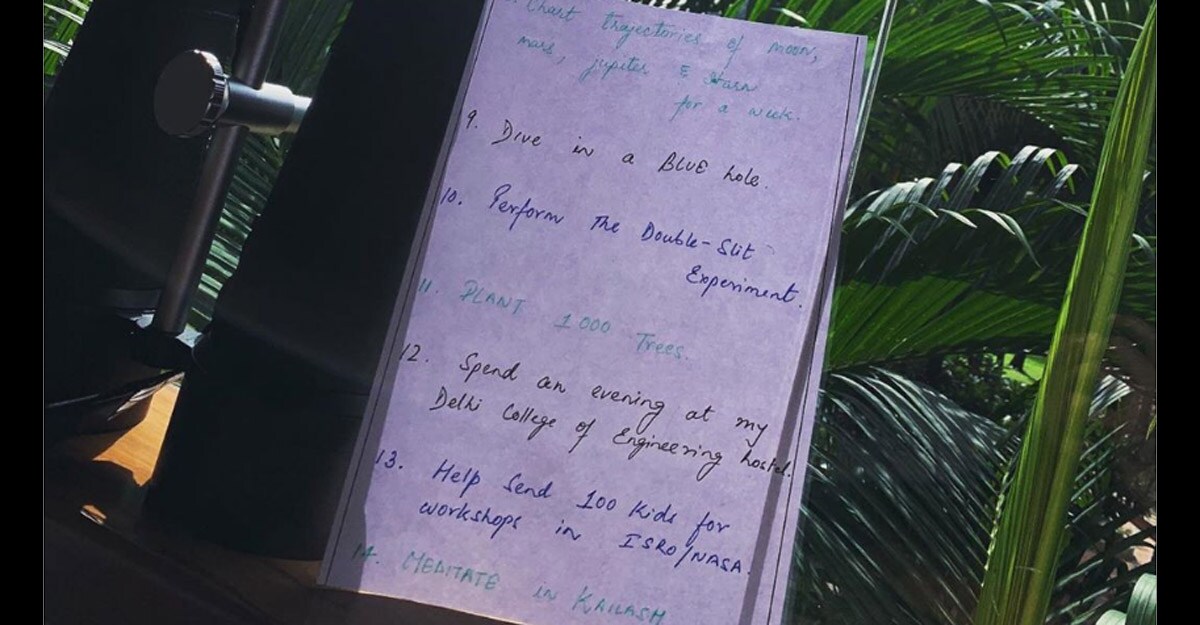 . Chart trajectories of moon,
mars, jupiter & Starn
for a week.
9. Dive in a BLUE hole.
10. Perform The Double-Slit
Experiment.
11. PLANT 1000 Trees.
12. Spend an evening at my
Delhi College of Engineering hostel.
13. Help Send 100 Kids for
workshops in ISRO/NASA.
14. MEDITATE in KAILASH